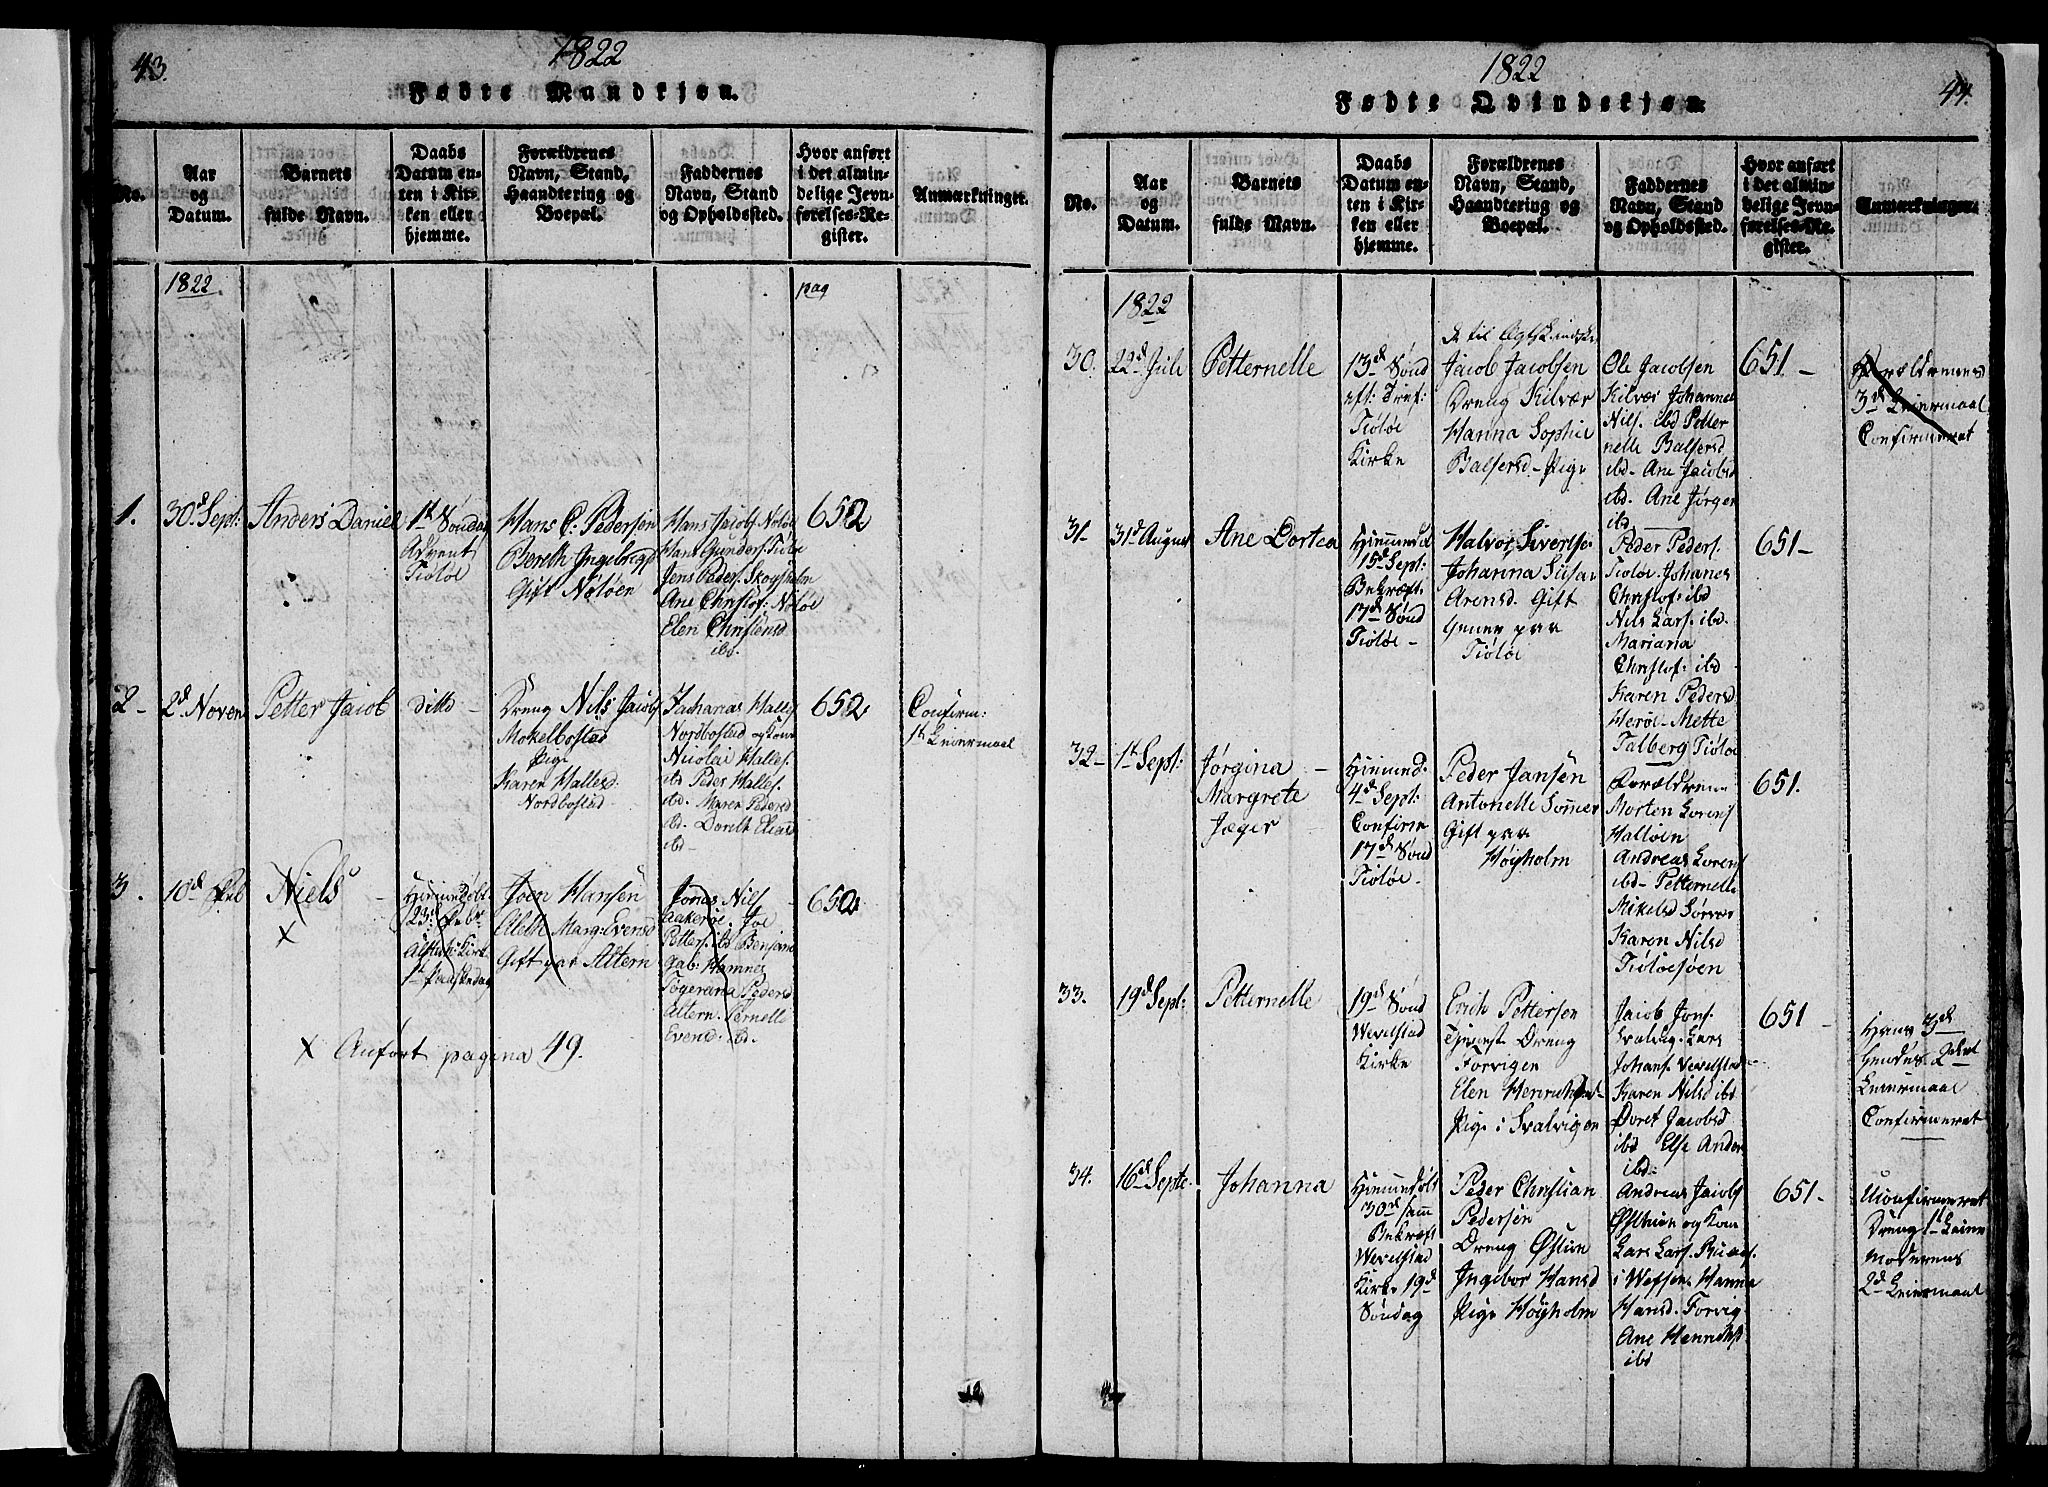 43.
1822
Fødte Mandkjøn.
No.
Aar
og
Datum.
Barnets
fulde Navn.
Daabs
Datum en-
ten i Kir-
ken eller
hjemme.
Forældrenes
Navn, Stand,
Haandtering og
Boepæl.
Faddernes
Navn, Stand
og Opholdssted.
Hvor anført
i det almin-
delige Jevn-
førelses-Re-
gister.
Anmærkninger.
1822
pag
1.
30d Sept:
Anders Daniel
1st Søndag
Advent
Tiøtøe
Hans C: Pedersen
Bereth Ingebrigts
Gift Nøløen
Hans Jacobs Nøløe
Hans Gunders: Tiøtøe
Jens Peders: Skogsholm
Ane Christof: Nøløe
Elen Christensd
ibd.
652
2-
2d Novem
Petter Jacob
ditto -
Dreng Nils Jacobs
Mokelbostad
Pige
Karen Hallesd:
Nordbostad
Zacharias Halles
Nordbostad og Kone
Nicolai Halles.
ibd Peder Halles.
ibd. Maren Pedersd
ibd. Doreth Eliasd
ibd-
652
Confirm:
1st Leiermaal
3.
10d Feb
Niels
x
Hiemmedøbt
23d Febr
Alstah: Kirk
1st Paaskedag
Joen Hansen
Aleth Marg: Evensd
Gift paa Altern
Jonas Nils
Aakerøe. Joe
Petters. ibd Benjam
Gab: Hamnes
Tøgerana Pedersd
Altern. Pernelle
Evensd. ibd.
652
x Anført pagina 49.
44.
1822
Fødte Qvindekjøn.
No.
Aar
og
Datum.
Barnets
fulde Navn.
Daabs
Datum en-
ten i Kir-
ken eller
hjemme.
Forældrenes
Navn, Stand,
Haandtering og
Boepæl.
Faddernes
Navn, Stand
og Opholdssted.
Hvor anført
i det almin-
delige Jevn-
førelses-Re-
gister.
Anmærkninger.
1822
30.
22d Juli
Petternelle
13d Sønd
eft: Tref:
Tiøtøe
Kirke
til
Jacob Jacobsen
Dreng Kilvær
Hanna Sophie
Balsersd - Pige
Ole Jacobsen
Kilvær Johannes
Nils. ibd Petter
nelle Balsersd
ibd. Ane Jacobsd
ibd. Ane Jørger
ibd
651 -
Forældrenes
3d Leiermaal
Confirmeret
31-
31d August
Ane Dortea
Hiemmed
15d Sept:
Bekræft:
17d Sønd
Tiøtøe -
Halvor Sivertse
Johanna Susan
Arensd. Gift
paa
Tiøtøe
Peder Peders.
Tiøtøe. Johanes
Christof: ibd
Nils Lars. ibd.
Mariana
Christof: ibd
Karen Pedersd
Herøe - Mette
Talberg Tiøtøe
651-
32-
1st Sept:
Jørgina -
Margrete
Jæger
Hiemmed.
4d Sept:
Confirm
17d Sønd
Tiøtøe -
Peder Jansen
Antonelle Sommer
Gift paa
Høyholm
Forældrene
Morten Lorens
Halløen
Andreas Lorens
ibd - Petternelle
Mikelsd Sørvær
Karen Nilsd
Tiøtøesøen
651.
33.
19d Sept:
Petternelle
19d Sønd
Wevelstad
Kirke
Erich Pettersen
Tjenest Dreng
Forvigen
Elen Henrichsd -
Pige i Svalvigen
Jacob Jons.
Svalvig. Lars
Johans. Wevelstad
Karen Nilsd ibd
Doret Jacobsd
ibd Else Anders
ibd.
651 -
Hans 3d
Hendes 2det
Leiermaal
Confirmeret
34.
16d Septe.
Johanna
Hiemmedøbt
30d sam
Bekræft
Wevelstad
Kirke 19d
Søndag
Peder Christian
Pedersen
Dreng Østuen
Ingebor Hansd
Pige Høyholm
Andreas Jacobs
Østuen og Kone
Lars Lars.
i Wefsen. Hanna
Hansd. Forvig
Ane Henrichsd
ibd
651-
Uconfirmeret
Dreng 1st Leier
Moderens
2d Leiermaal